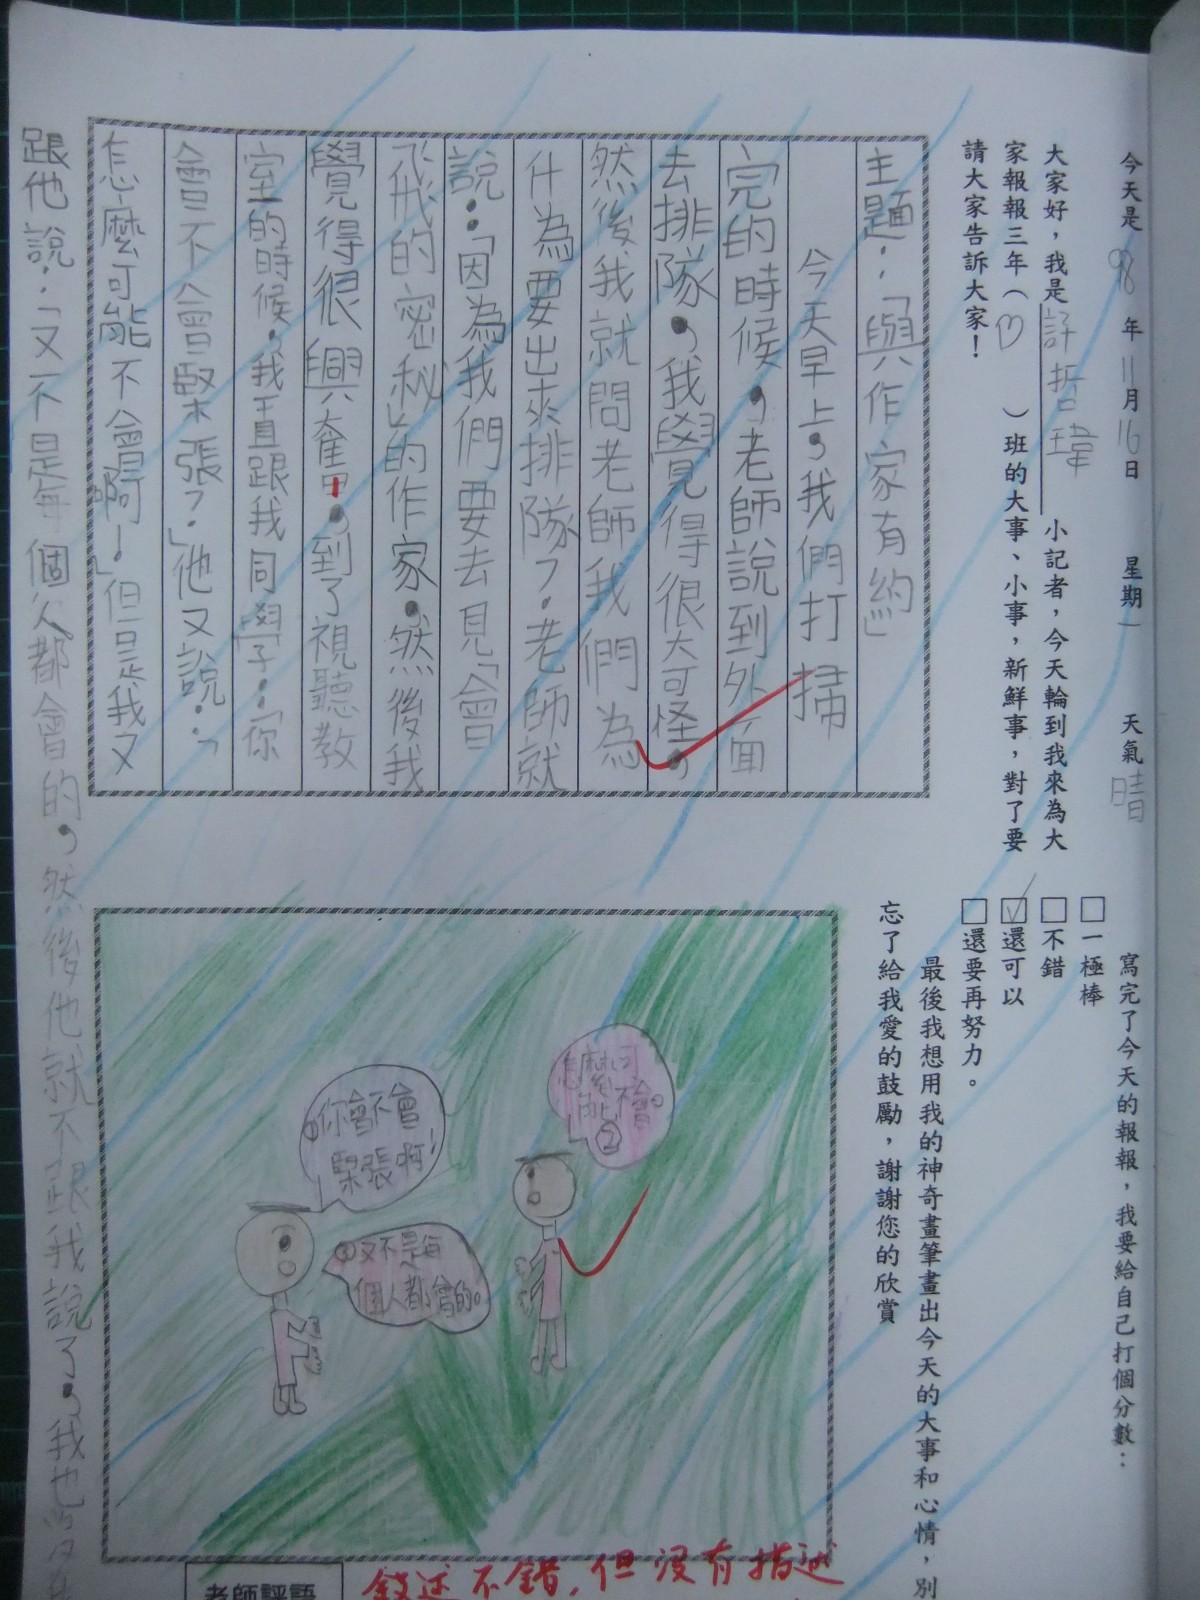 今天是98年11月16日 星期一 天氣晴
大家好，我是許哲瑋小記者，今天輪到我來為大
家報報三年（ ）班的大事、小事，新鮮事，對了要
請大家告訴大家！
主題：「與作家有約」
今天早上，我們打掃
完的時候，老師說到外面
去排隊，我覺得很大可怪，
然後我就問老師我們為
什為要出來排隊？老師就
說：「因為我們要去見「會
飛的密秘」的作家。然後我
覺得很興奮，到了視聽教
室的時候，我直跟我同學子：「你
會不會緊張？」他又說：「
怎麼可能不會啊！」但是我又
跟他說：「又不是每個人都會的，然後他就不跟我說了，我也
寫完了今天的報報，我要給自己打個分數：
□一極棒
□不錯
☑還可以
□還要再努力。
最後我想用我的神奇畫筆畫出今天的大事和心情，別
忘了給我愛的鼓勵，謝謝您的欣賞
①你會不會
緊張啊！
怎麼可
能不會。
②
③又不是每
個人都會的。
老師評語
敘述不錯，但沒有描述